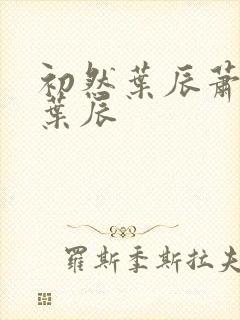 初然葉辰蕭
葉辰
羅斯季斯拉夫